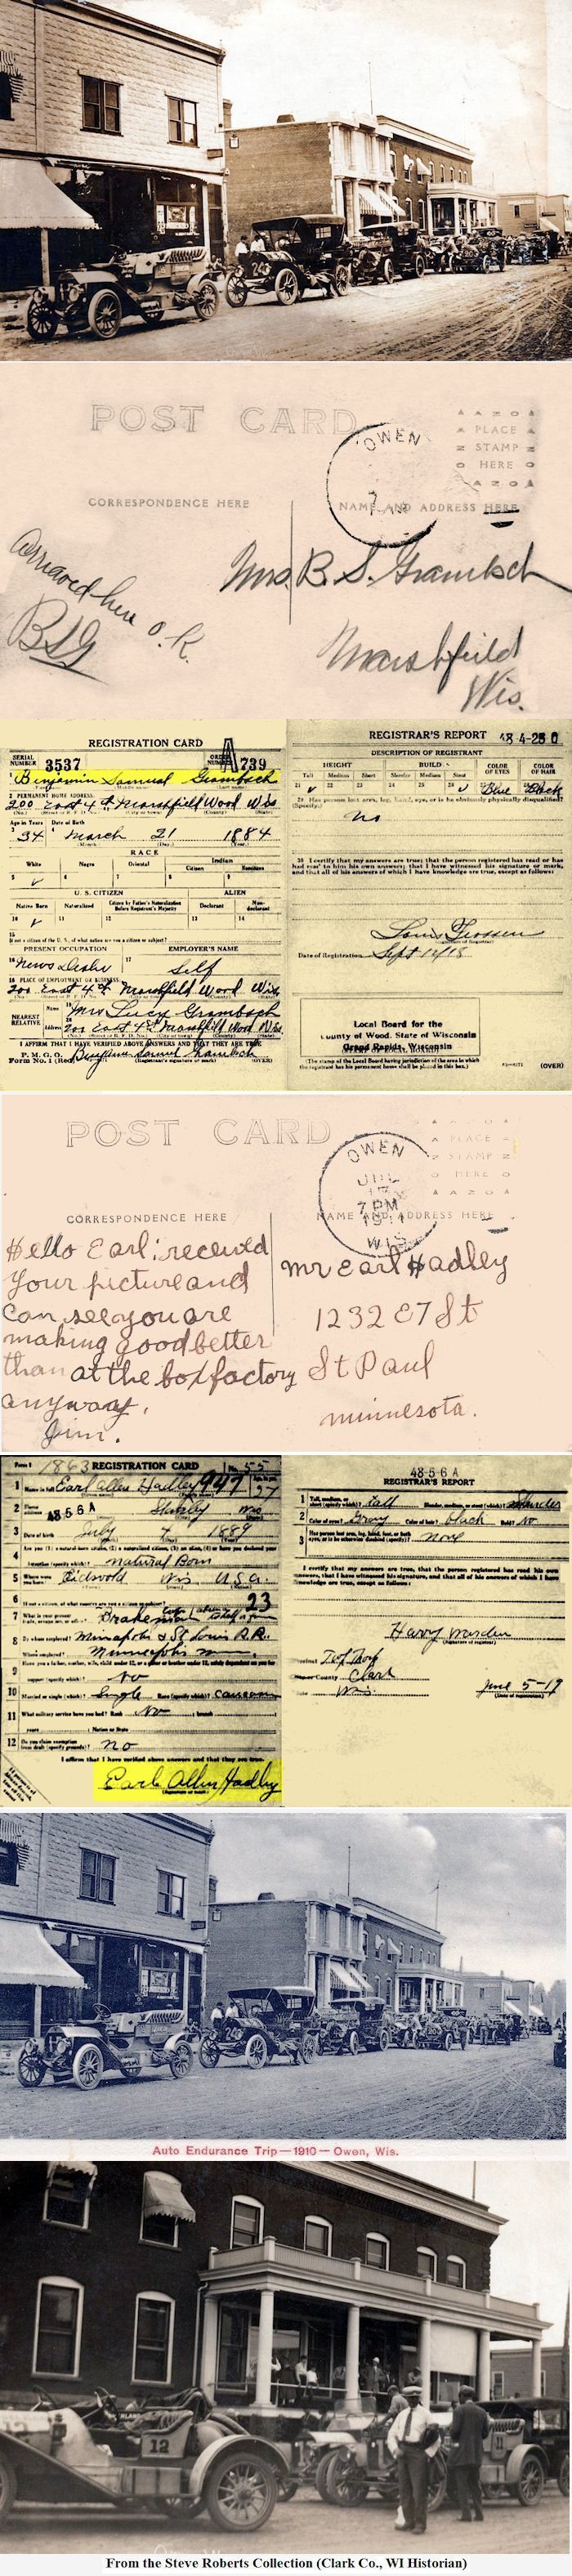 POST CARD
OWEN
A Z O A
PLACE
STAMP
HERE
A Z O A
CORRESPONDENCE HERE
NAME AND ADDRESS HERE
Arriaved here O.K.
BSG
Mrs. B. S. Grambsch
Marshfield
Wis.
REGISTRATION CARD
SERIAL NUMBER 3537
ORDER NUMBER A 739
1 Benjamin Samuel Grambsch
2 PERMANENT HOME ADDRESS:
200 East 4th Marshfield Wood Wis
Age in Years Date of Birth
34 March 21 1884
RACE
White Negro Oriental Indian
Citizen
5 6 7 8 9
U. S. CITIZEN ALIEN
Native Born Naturalized Citizen by Father's Naturalization Before Registrant's Majority Declarant Non-declarant
10 11 12 13 14
15
If not a citizen of the U. S., of what nation are you a citizen or subject?
PRESENT OCCUPATION EMPLOYER'S NAME
16 News Dealer 17 Self
18 PLACE OF EMPLOYMENT OR BUSINESS:
200 East 4th Marshfield Wood Wis
NEAREST RELATIVE Name Mrs Lucy Grambsch
Address 200 East 4th Marshfield Wood Wis
I AFFIRM THAT I HAVE VERIFIED ABOVE ANSWERS AND THAT THEY ARE TRUE
P. M. G. O.
Form No. 1 (Red) Benjamin Samuel Grambsch
(Registrant's signature or mark) (OVER)
REGISTRAR'S REPORT
DESCRIPTION OF REGISTRANT
HEIGHT BUILD COLOR OF EYES COLOR OF HAIR
Tall Medium Short Slender Medium Stout
21 22 23 24 25 26 27 Blue 28 Black
29 Has person lost arm, leg, hand, eye, or is he obviously physically disqualified?
(Specify.)
no
30 I certify that my answers are true; that the person registered has read or has had read to him his own answers; that I have witnessed his signature or mark, and that all of his answers of which I have knowledge are true, except as follows:
Date of Registration Sept 12/18
Local Board for the
County of Wood, State of Wisconsin
Grand Rapids, Wisconsin
(The stamp of the Local Board having jurisdiction of the area in which the registrant has his permanent home shall be placed in this box.)
(OVER)
POST CARD
OWEN
JUL
17
7 PM
1911
WIS
PLACE
STAMP
HERE
A Z O A
CORRESPONDENCE HERE
NAME AND ADDRESS HERE
Hello Earl: received
your picture and
can see you are
making good better
than at the box factory
anyway.
Jim.
Mr Earl Hadley
1232 E 7 St
St Paul
minnesota.
Form 1 1863 REGISTRATION CARD No. 55
1 Name in full Earl Allen Hadley 947 27
2 Home address 4856A Stanley Wis
3 Date of birth July 7 1889
natural Born
5 Wis U.S.A.
23
7 Brakeman
8 By whom employed? Minneapolis & St Louis R.R.
Minneapolis
No
10 Married or single (which)? Single Race (specify which)? Caucasian
11 What military service have you had? Rank No branch
years Nation or State
12 Do you claim exemption from draft (specify grounds)? no
I affirm that I have verified above answers and that they are true.
Earl Allen Hadley
(Signature or mark)
4856 A
REGISTRAR'S REPORT
1 Tall Slender
2 Color of eyes Gray Color of hair black Bald? No
3 none
I certify that my answers are true, that the person registered has read his own answers, that I have witnessed his signature, and that all of his answers of which I have knowledge are true, except as follows:
(Signature of registrar)
Clark
Wis.
June 5-17
(Date of registration)
Auto Endurance Trip—1910—Owen, Wis.
12
11
From the Steve Roberts Collection (Clark Co., WI Historian)